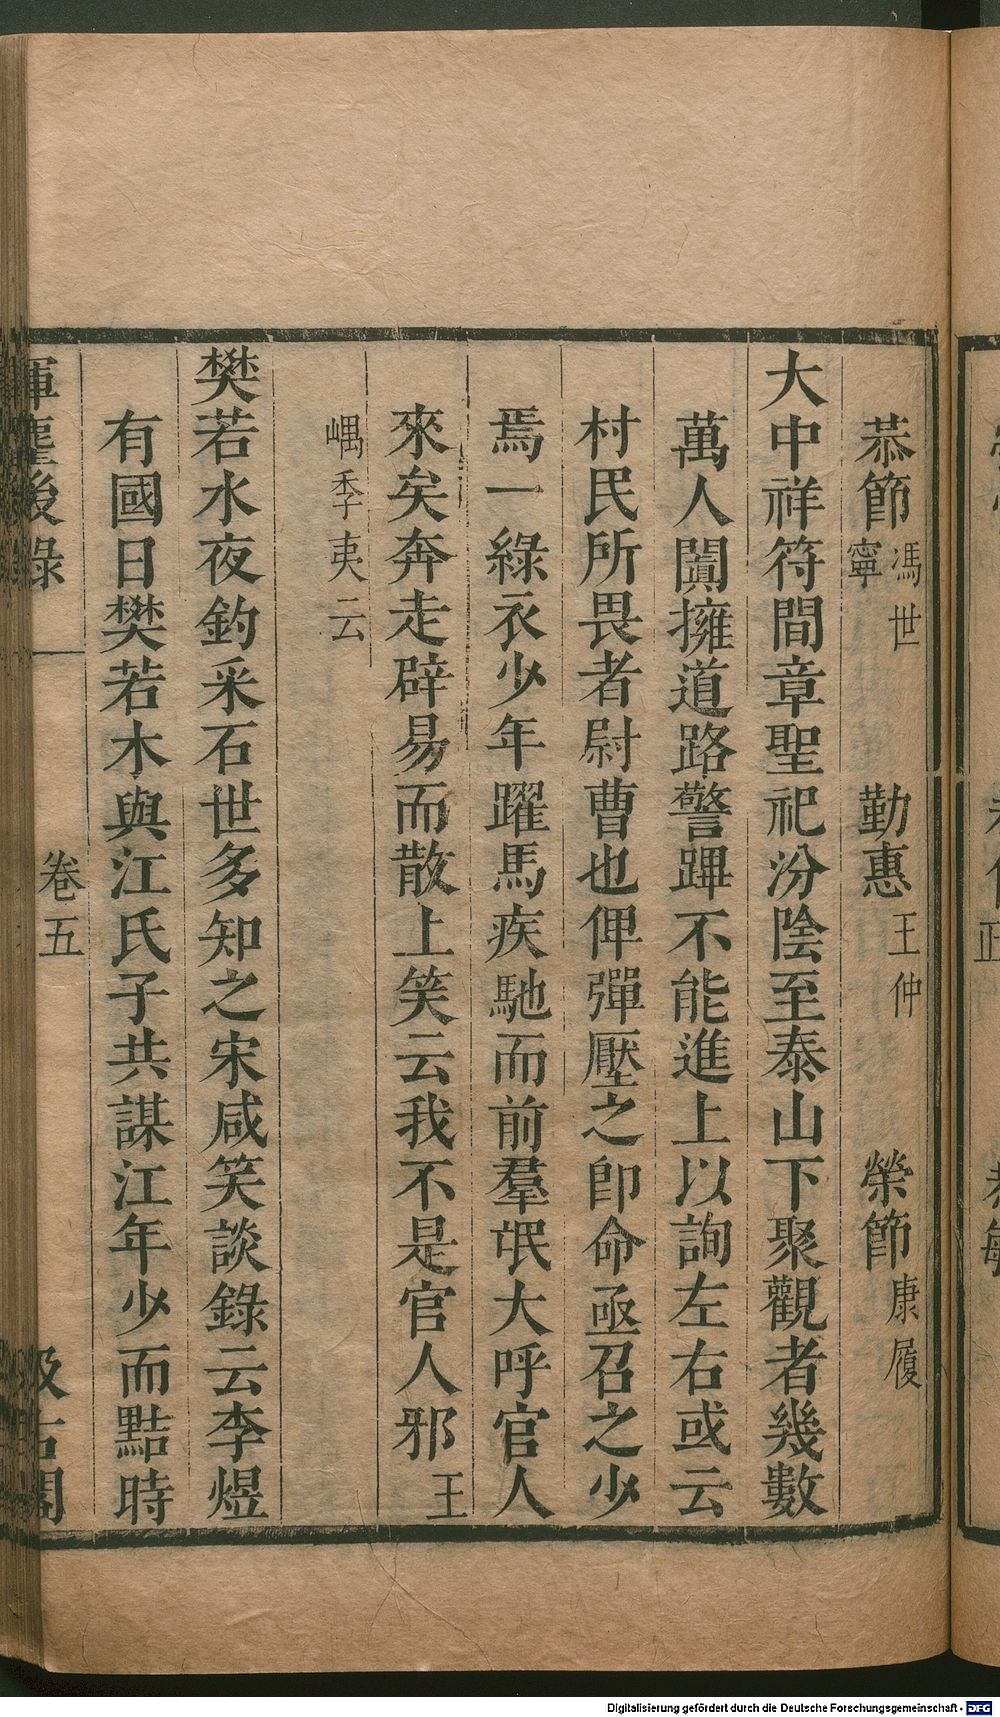 恭節馮世寧　勤惠王仲　榮節康履
大中祥符間章聖祀汾陰至泰山下聚觀者幾數
萬人闐擁道路警蹕不能進上以詢左右或云
村民所畏者尉曹也俾彈壓之卽命亟召之少
焉一綠衣少年躍馬疾馳而前羣氓大呼官人
來矣奔走辟易而散上笑云我不是官人邪王
嵎季夷云
樊若水夜釣采石世多知之宋咸笑談錄云李煜
有國日樊若木與江氏子共謀江年少而黠時
揮塵後錄　卷五　汲古閣
Digitalisierung gefördert durch die Deutsche Forschungsgemeinschaft - DFG